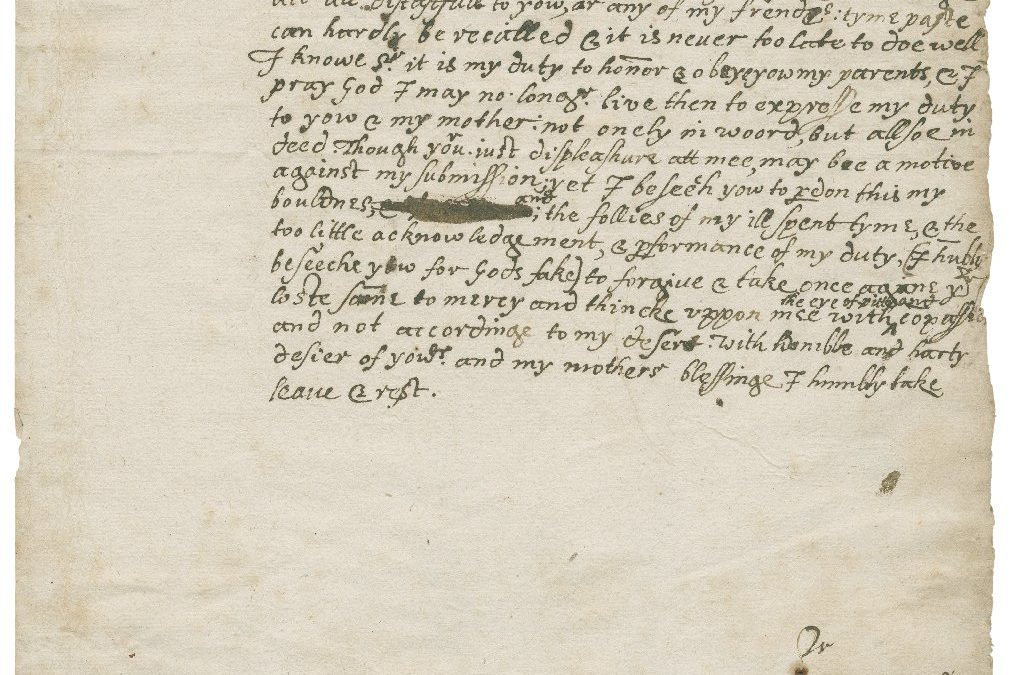 distastfull to you, or any of my frends: tyme paste
can hardly be recalled & it is never too late to doe well
I knowe Sr it is my duty to honor & obey yow my parents, & I
pray God I may no longr live then to expresse my duty
to yow & my mother: not onely in woord, but allsoe in
deed. Though yor just displeasure att mee, may bee a motive
against my submission; yet I beseech yow to pdon this my
bouldnes, and
, the follies of my ill spent tyme, & the
too little acknowledgement, & pformance of my duty, (I humbly
beseeche yow for Gods sake) to forgive & take once againe yor
loste sonne to mercy and thincke vppon mee with the eye of pitty and copassion
and not accordinge to my desert: with humble and harty
desier of yowr and my mothers blessinge I humbly take
leave & rest.
Yr